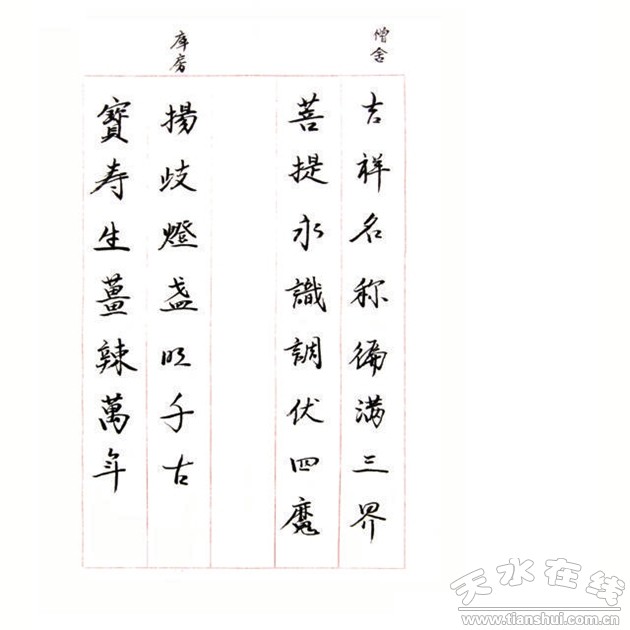 僧舍
吉祥名称徧满三界
菩提永識調伏四魔
库房
揚歧燈盏明千古
寶寿生薑辣萬年
天水在线
www.tianshui.com.cn